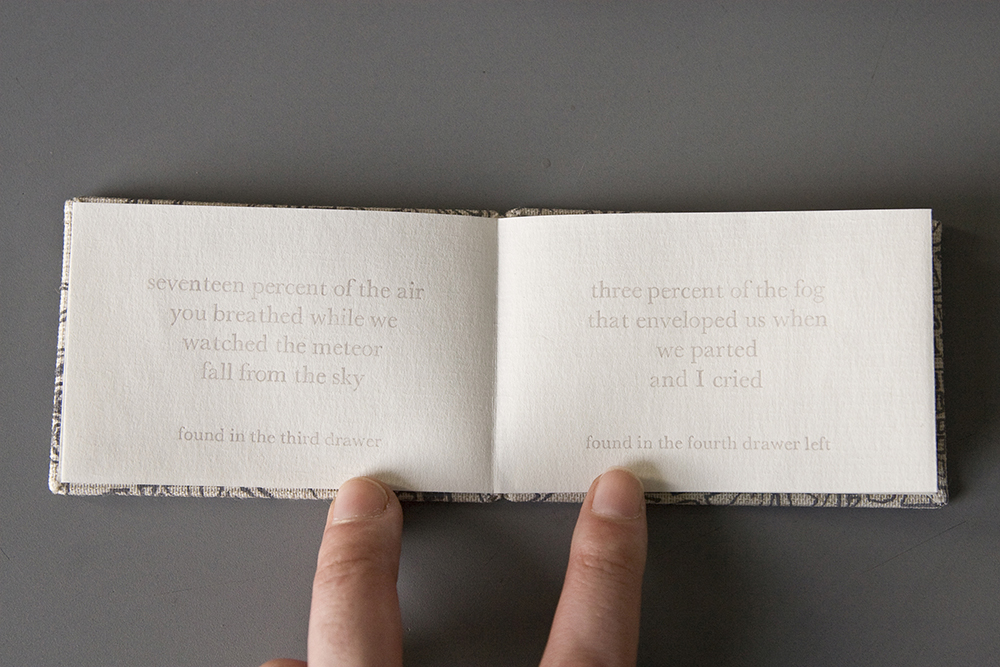 seventeen percent of the air
you breathed while we
watched the meteor
fall from the sky
found in the third drawer
three percent of the fog
that enveloped us when
we parted
and I cried
found in the fourth drawer left